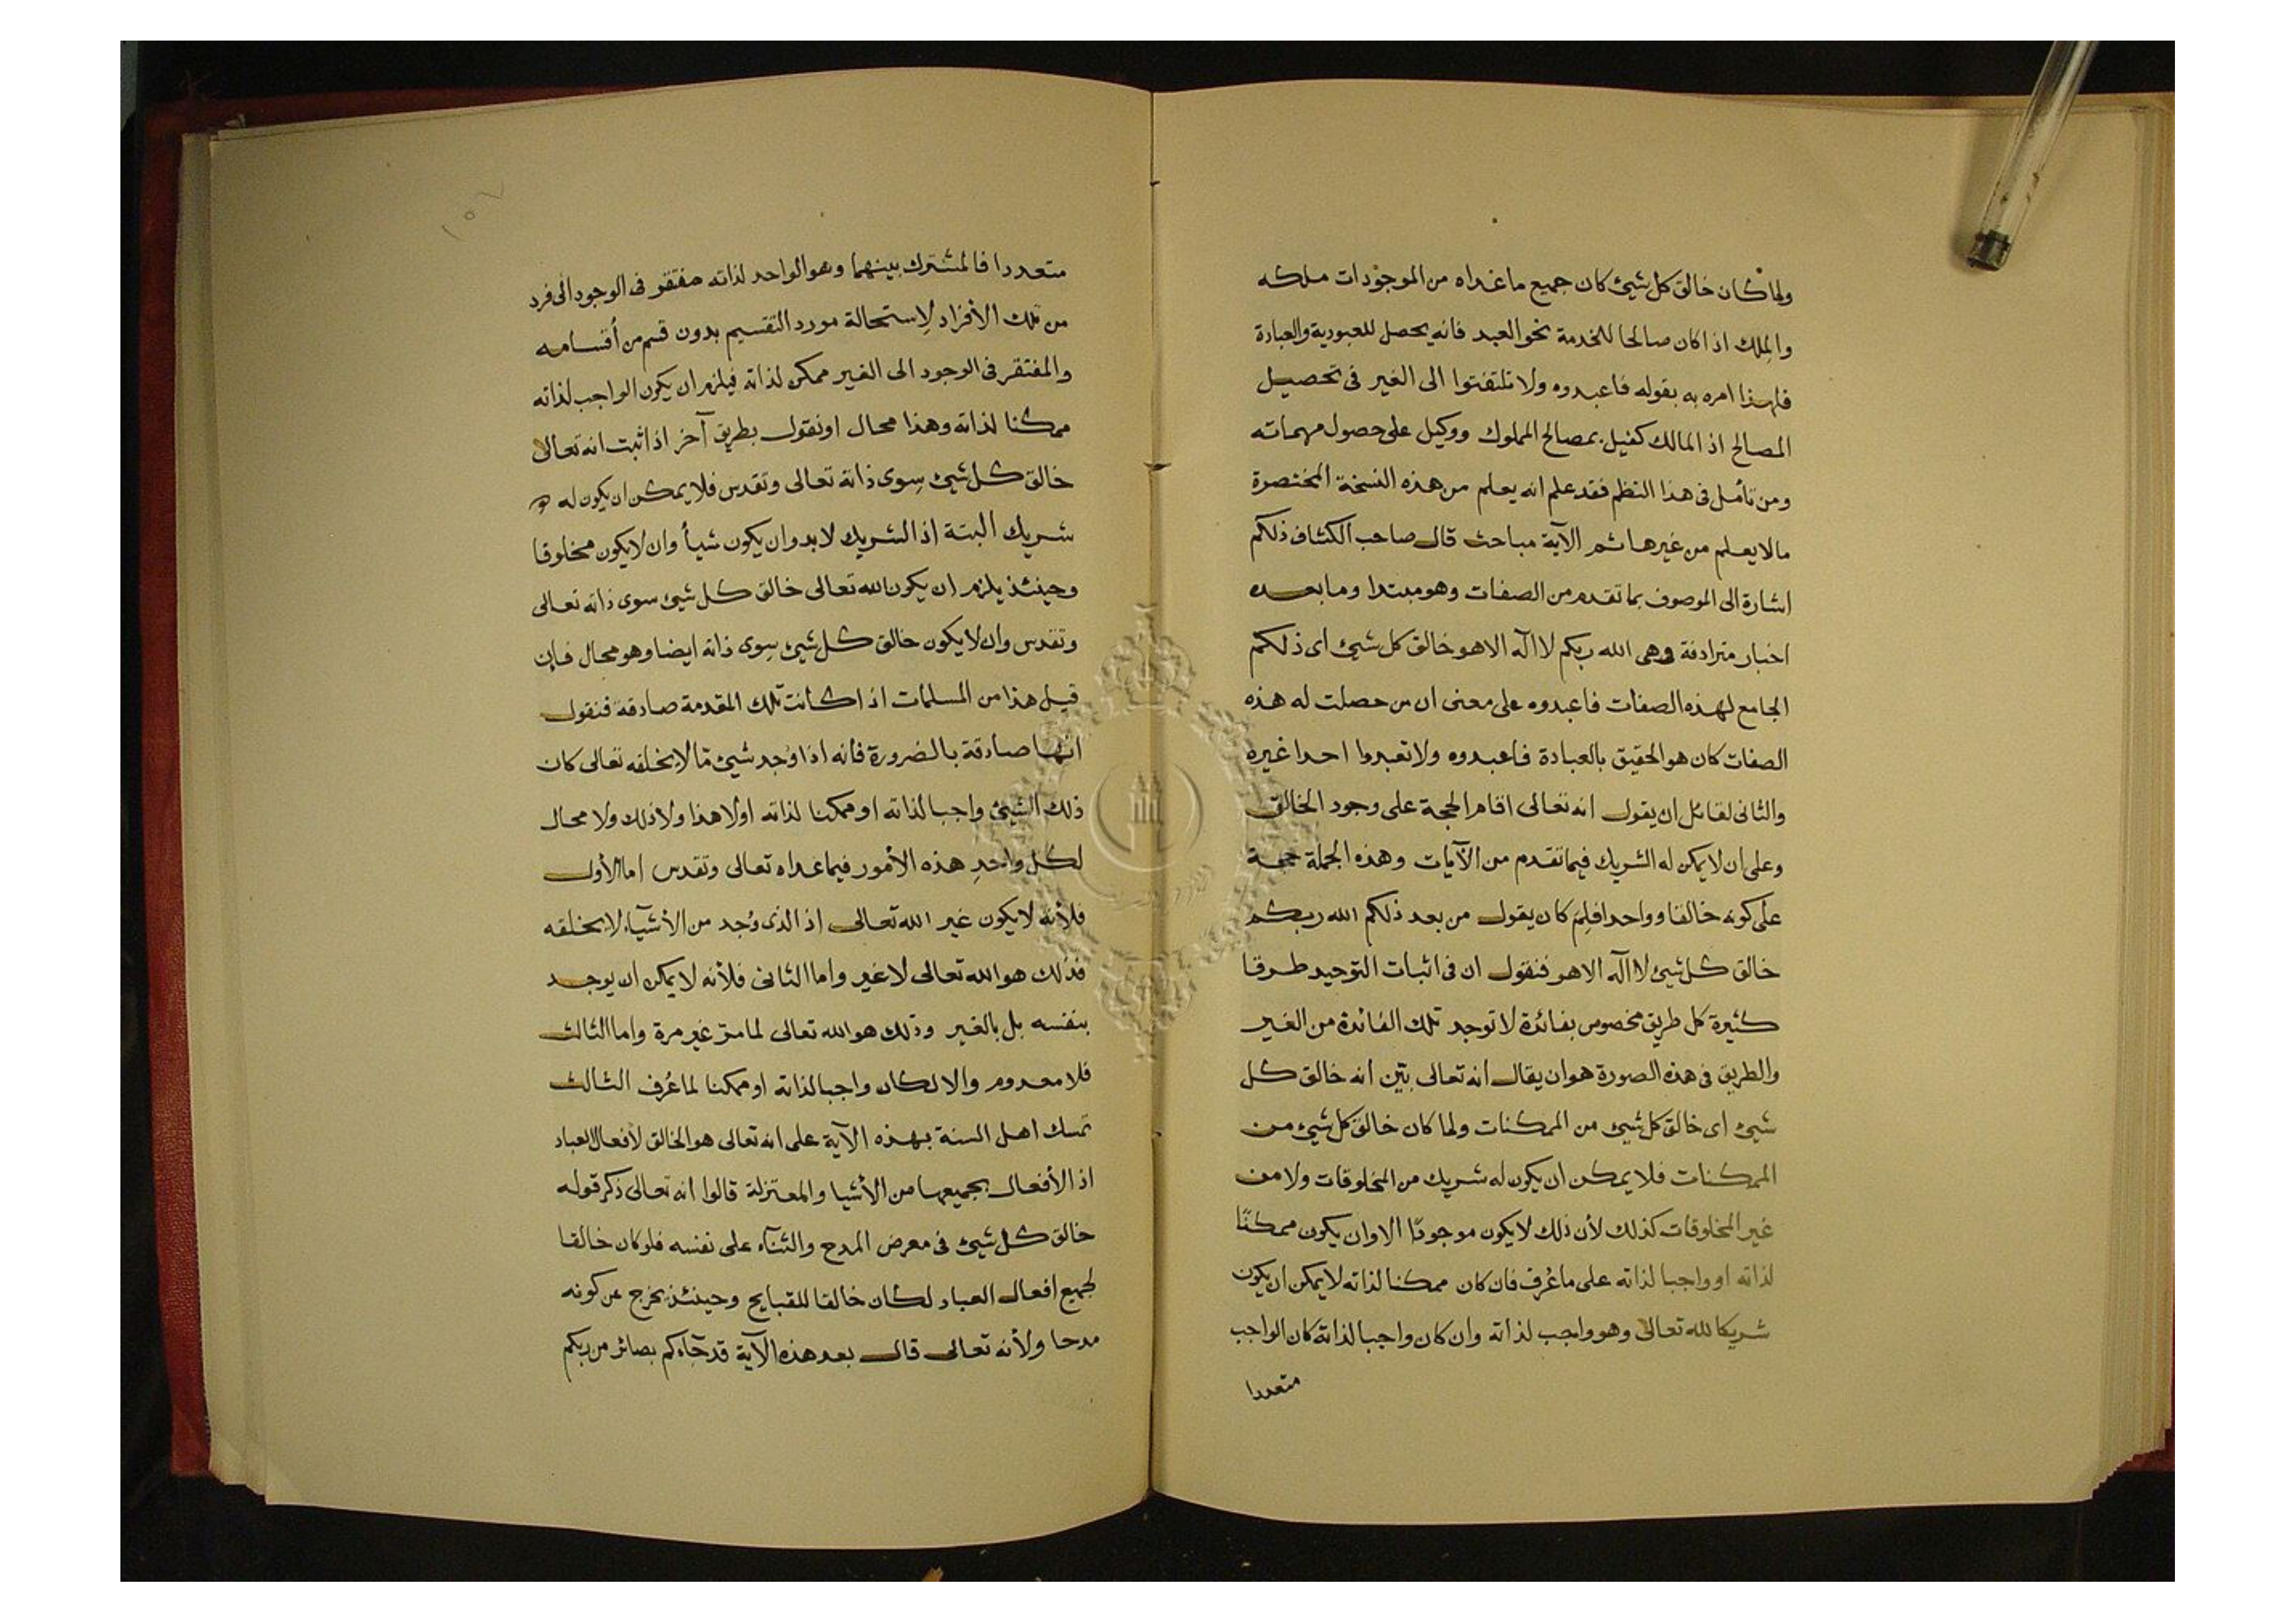 ولما كان خالق كل شيئ كان جميع ما عداه من الموجودات ملكه
والملك اذا كان صالحا للخدمة نحو العبد فانه يحصل للعبودية والعبادة
فلهذا امره به بقوله فاعبدوه ولا تلتفتوا الى الغير فى تحصيل
المصالح اذ المالك كفيل بمصالح المملوك ووكيل على حصول مهماته
ومن تأمل فى هذا النظم فقد علم انه يعلم من هذه النسخة المختصرة
ما لا يعلم من غيرها ثم الآية مباحث قال صاحب الكشاف ذلكم
اشارة الى الموصوف بما تقدم من الصفات وهو مبتدا وما بعده
اخبار مترادفة وهى الله ربكم لا اله الا هو خالق كل شيئ اى ذلكم
الجامع لهذه الصفات فاعبدوه على معنى ان من حصلت له هذه
الصفات كان هو الحقيق بالعبادة فاعبدوه ولا تعبدوا احدا غيره
والثانى لقائل ان يقول انه تعالى اقام الحجة على وجود الخالق
وعلى ان لا يمكن له الشريك فيما تقدم من الآيات وهذه الجملة حجة
على كونه خالقا وواحدا فلِمَ كان يقول من بعد ذلكم الله ربكم
خالق كل شيئ لا اله الا هو فنقول ان فى اثبات التوحيد طرقا
كثيرة كل طريق مخصوص بفائدة لا توجد تلك الفائدة من الغير
والطريق فى هذه الصورة هو ان يقال انه تعالى بيّن انه خالق كل
شيئ اى خالق كل شيئ من الممكنات ولما كان خالق كل شيئ من
الممكنات فلا يمكن ان يكون له شريك من المخلوقات ولا من
غير المخلوقات كذلك لأن ذلك لا يكون موجودًا الا وان يكون ممكنًا
لذاته او واجبا لذاته على ما عُرف فان كان ممكنا لذاته لا يمكن ان يكون
شريكا لله تعالى وهو واجب لذاته وان كان واجبا لذاته كان الواجب
متعددا
١٥٧
متعددا فالمشترك بينهما وهو الواحد لذاته مفتقر فى الوجود الى فرد
من تلك الأفراد لِاستحالة مورد التقسيم بدون قسم من أقسامه
والمفتقر فى الوجود الى الغير ممكن لذاته فيلزم ان يكون الواجب لذاته
ممكنا لذاته وهذا محال او نقول بطريق آخر اذا ثبت انه تعالى
خالق كل شيئ سِوى ذاته تعالى وتقدس فلا يمكن ان يكون له
شريك البتة اذ الشريك لا بد وان يكون شيأ وان لا يكون مخلوقا
وحينئذ يلزم ان يكون الله تعالى خالق كل شيئ سوى ذاته تعالى
وتقدس وان لا يكون خالق كل شيئ سِوى ذاته ايضا وهو محال فإن
قيل هذا من المسلمات اذا كانت تلك المقدمة صادقة فنقول
انها صادقة بالضرورة فانه اذا وُجد شيئ ما لا يخلقه تعالى كان
ذلك الشيئ واجبا لذاته او ممكنا لذاته او لا هذا ولا ذلك ولا محال
لكل واحدِ هذه الأمور فيما عداه تعالى وتقدس اما الأول
فلأنه لا يكون غير الله تعالى اذ الذى وُجد من الأشيآء لا يخلقه
فذلك هو الله تعالى لا غير واما الثانى فلأنه لا يمكن ان يوجد
بنفسه بل بالغير وذلك هو الله تعالى لما مرّ غير مرة واما الثالث
فلا معدوم والا لكان واجبا لذاته او ممكنا لما عُرف الثالث
تمسك اهل السنة بهذه الآية على انه تعالى هو الخالق لأفعال العباد
اذ الأفعال بجميعها من الأشيا والمعتزلة قالوا انه تعالى ذكر قوله
خالق كل شيئ فى معرض المدح والثنآء على نفسه فلو كان خالقا
لجميع افعال العباد لكان خالقا للقبايح وحينئذ يخرج عن كونه
مدحا ولأنه تعالى قال بعد هذه الآية قد جآءكم بصائر من ربكم